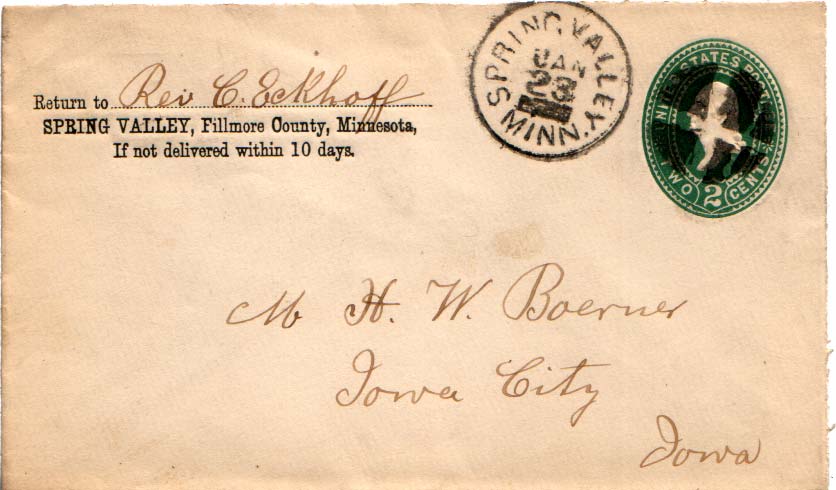 Return to Rev C. Eckhoff
SPRING VALLEY, Fillmore County, Minnesota,
If not delivered within 10 days.
SPRING VALLEY,
JAN
23
MINN.
UNITED STATES POSTAGE
TWO 2 CENTS
Mr H. W. Boerner
Iowa City
Iowa